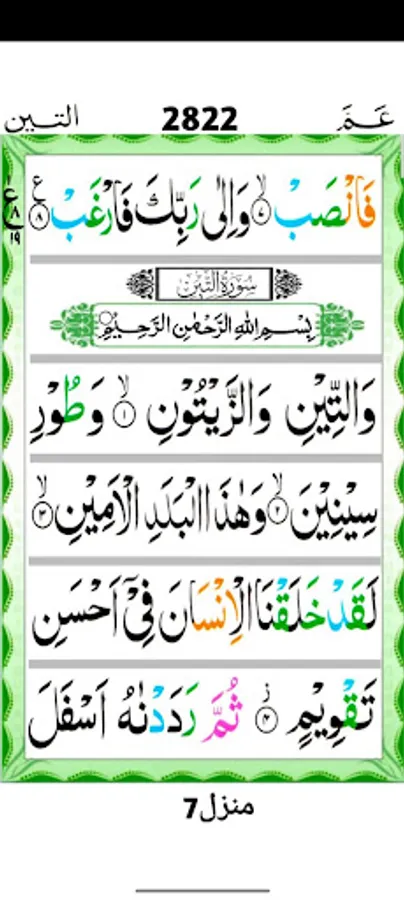 التـين 2822 عَـمَّ
فَانْصَبْ ۙ‏﴿۷﴾ وَاِلٰى رَبِّكَ فَارْغَبْ ﴿۸﴾ ع ۸ ۱۹
سُوْرَةُ التِّيْنِ
بِسْمِ اللّٰهِ الرَّحْمٰنِ الرَّحِيْمِ
وَالتِّيْنِ وَالزَّيْتُوْنِ ۙ﴿۱﴾ وَطُوْرِ
سِيْنِيْنَ ۙ﴿۲﴾ وَهٰذَا الْبَلَدِ الْاَمِيْنِ ۙ﴿۳﴾
لَقَدْ خَلَقْنَا الْاِنْسَانَ فِيْۤ اَحْسَنِ
تَقْوِيْمٍ ۫﴿۴﴾ ثُمَّ رَدَدْنٰهُ اَسْفَلَ
منزل7